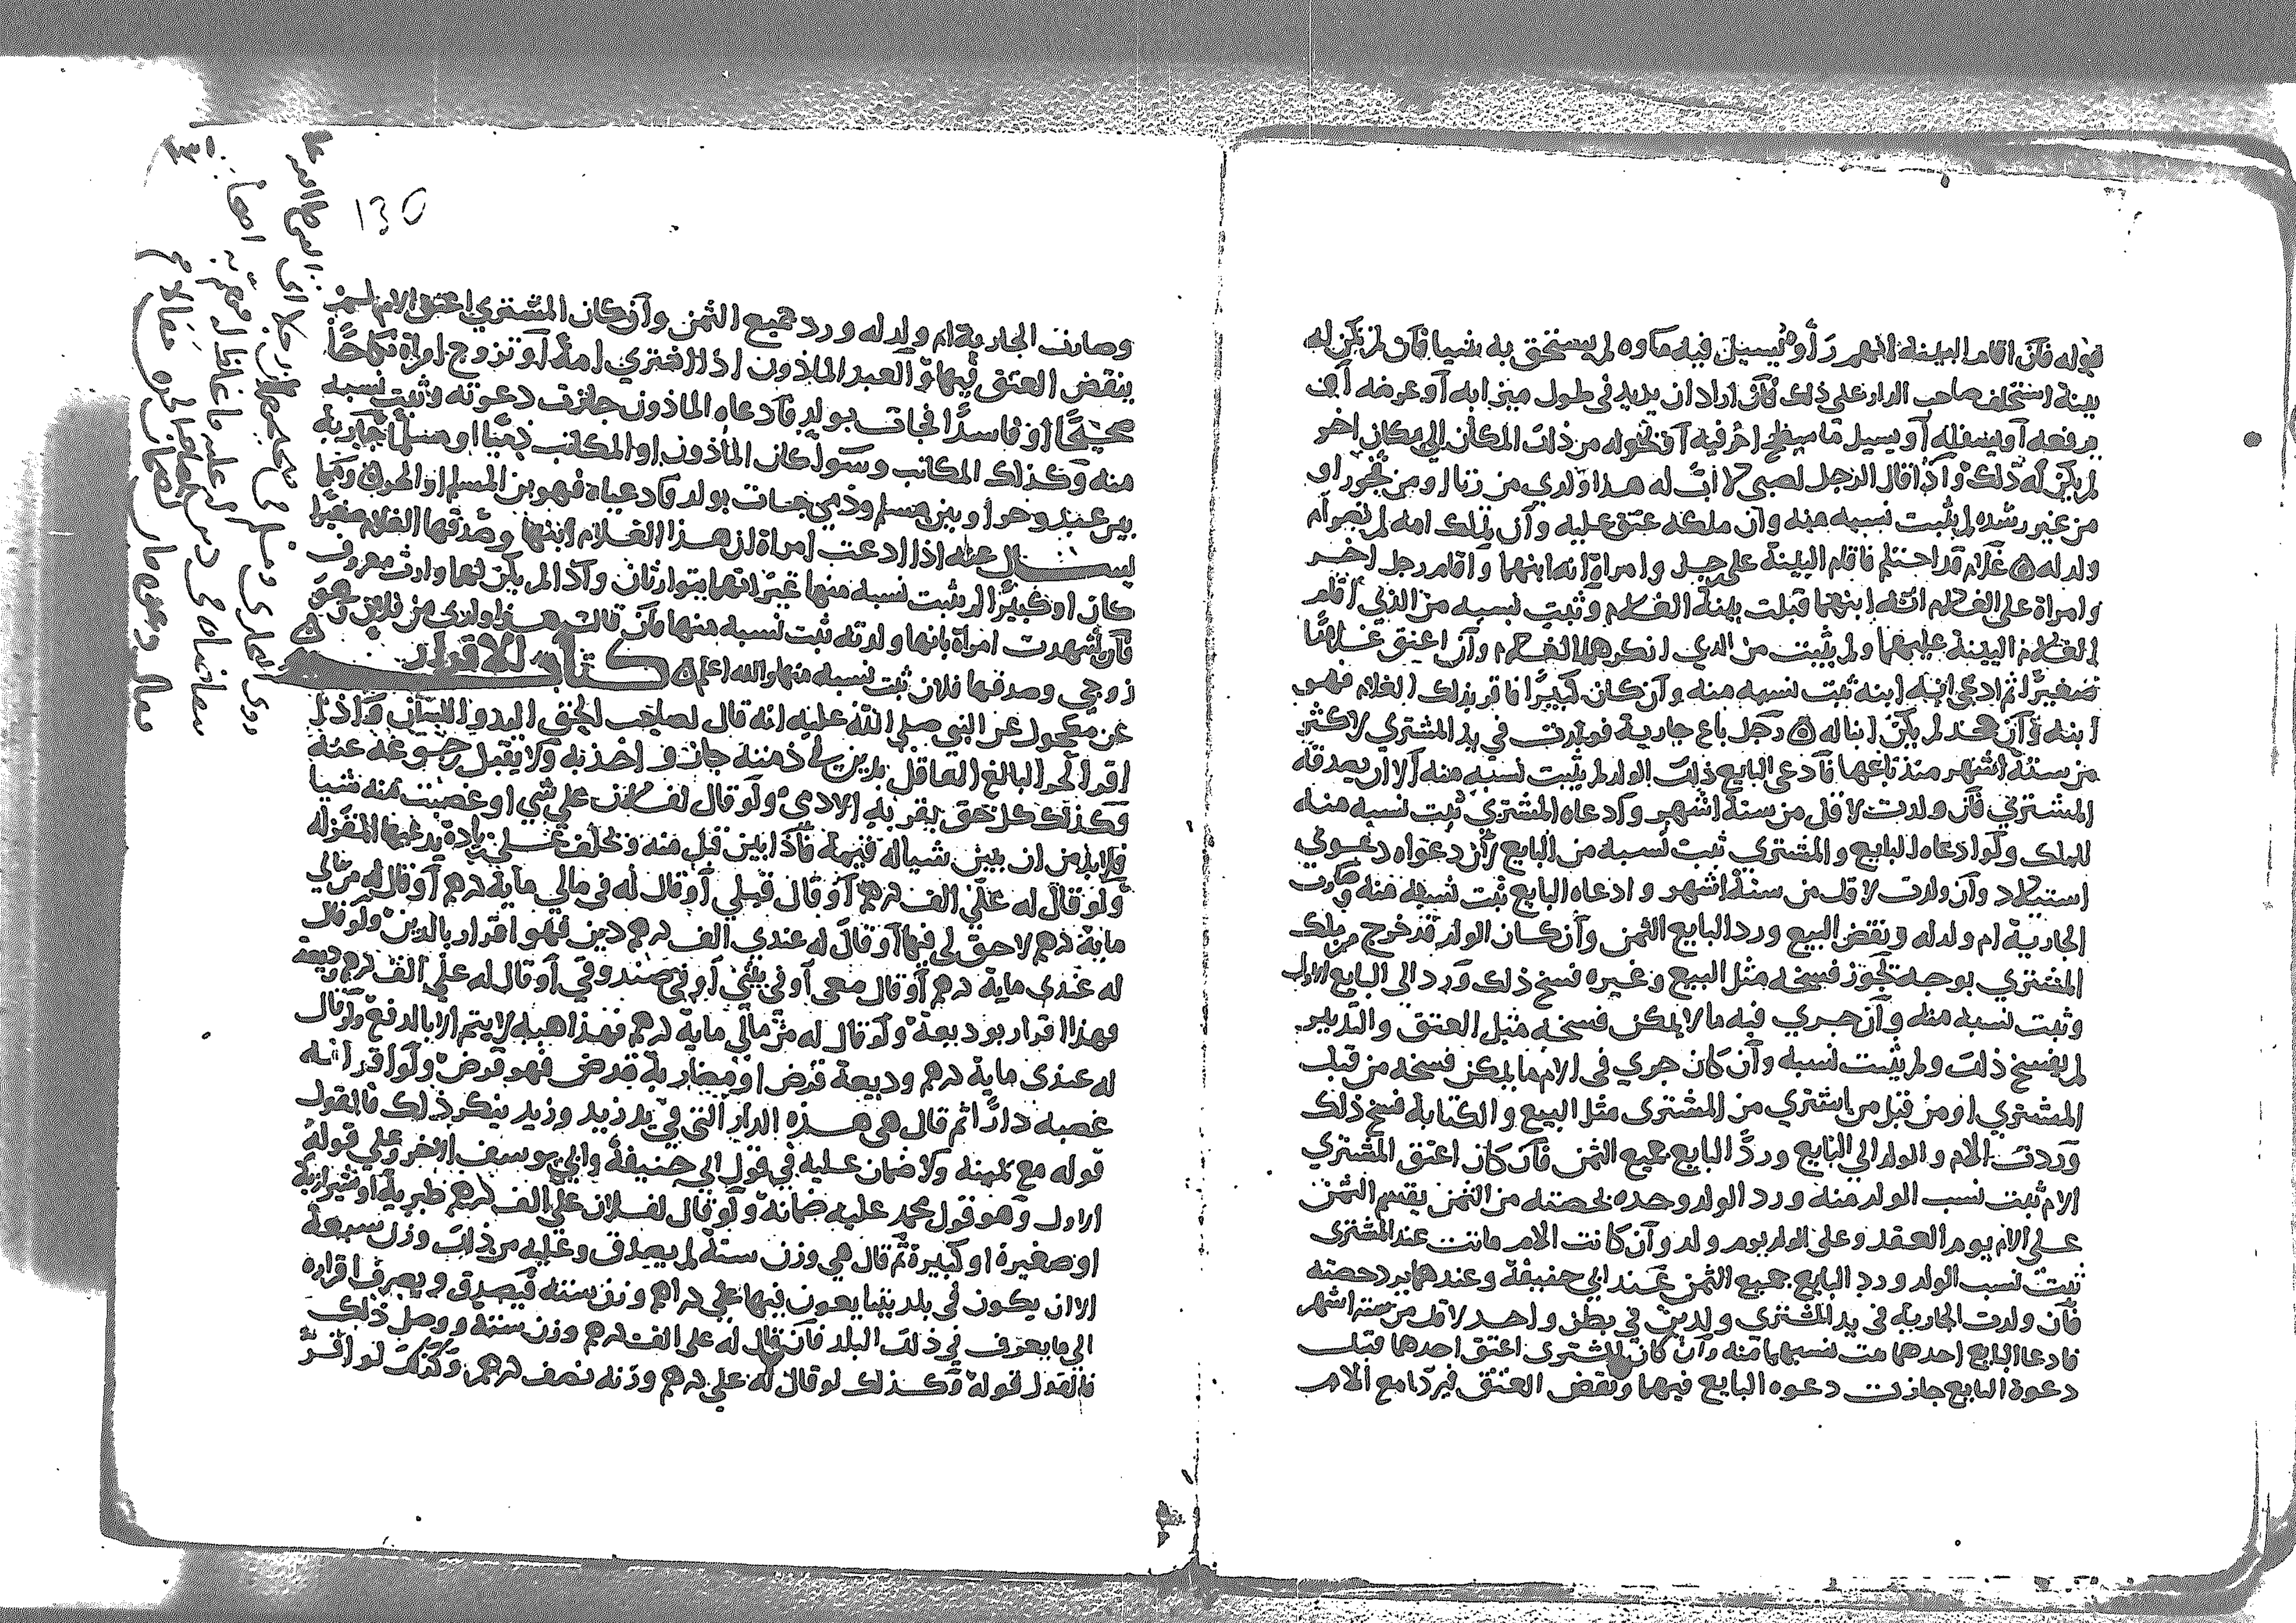 قوله فان اقام البينة انهم رأوه يسيل فيه ماوه لم يستحق به شيا فان لم يكن له
بينة استحلف صاحب الدار على ذلك فان اراد ان يزيد في طول ميزابه أو عرضه أو
يرفعه أو يسفله أو يسيل ما سطح اخر فيه أو تحوله من ذلك المكان الي مكان اخر
لم يكن له ذلك واذا قال الرجل لصبي لا اب له هذا ولدي من زنا او من فجور او
من غير رشده لم يثبت نسبه منه وان ملكه عتق عليه وان ملك امه لم تصر أم
ولد له غلام قد احتلم فاقام البينة على رجل وامراة أنه ابنهما وأقام رجل اخر
وامراة على الغلام انه ابنهما قبلت بينة الغلام وثبت نسبه من الذي أقام
الغلام البينة عليهما ولم يثبت من الذي انكرهما الغلام وأن اعتق غلاما
صغيرا ثم ادعى انه ابنه ثبت نسبه منه وأن كان كبيرا فاقر بذلك الغلام فهو
ابنه وأن جحد لم يكن ابنا له رجل باع جارية فولدت في يد المشتري لاكثر
من ستة أشهر منذ باعها فأدعى البايع ذلك الولد لم يثبت نسبه منه ألا ان يصدقه
المشتري فأن ولدت لاقل من ستة اشهر وادعاه المشتري ثبت نسبه منه
للملك ولو ادعاه البايع والمشتري ثبت نسبه من البايع لأن دعواه دعوي
استيلاد وأن ولدت لاقل من ستة اشهر وادعاه البايع ثبت نسبه منه وصارت
الجارية ام ولد له ونقض البيع ورد البايع الثمن وأن كان الولد قد خرج من ملك
المشتري بوجه تجوز فسخه مثل البيع وغيره فسخ ذلك ورد الى البايع الاول
وثبت نسبه منه وأن جري فيه ما لا يمكن فسخه مثل العتق والتدبير
لم يفسخ ذلك ولم يثبت نسبه وأن كان جري في الام ما يمكن فسخه من قبل
المشتري او من قبل من اشتري من المشتري مثل البيع والكتابة فسخ ذلك
وردت الام والولد الي البايع ورد البايع جميع الثمن فأن كان اعتق المشتري
الام ثبت نسب الولد منه ورد الولد وحده بحصته من الثمن يقسم الثمن
على الام يوم العقد وعلى الولد يوم ولد وأن كانت الام ماتت عند المشتري
ثبت نسب الولد ورد البايع جميع الثمن عند ابي حنيفة وعندهما يرد حصته
فأن ولدت الجارية في يد المشتري ولدين في بطن واحد لاقل من ستة اشهر
فادعا البايع احدهما ثبت نسبهما منه وأن كان المشتري اعتق احدهما قبل
دعوة البايع جازت دعوه البايع فيهما ونقض العتق فيردا مع الام
130
وصارت الجارية ام ولد له ورد جميع الثمن وأن كان المشتري اعتق الام لم
ينقض العتق فيها والعبد الماذون اذا اشتري امة أو تزوج امراة نكاحا
صحيحا او فاسدا فجات بولد فأدعاه الماذون جازت دعوته وثبت نسبه
منه وكذلك المكاتب وسوا كان المأذون او المكاتب ذميا او مسلما جارية
بين عبد وحر أو بين مسلم وذمي جات بولد فادعياه فهو بن المسلم او الحر
اذا ادعت امراة ان هذا الغلام ابنها وصدقها الغلام صغيرا
كان او كبيرا لم يثبت نسبه منها غير انهما يتوارثان واذا لم يكن لهما وارث معروف
فأن شهدت امراة بانها ولدته ثبت نسبه منها فأن قالت هذا ولدي من فلان وهو
زوجي وصدقها فلان ثبت نسبه منها والله اعلم كتاب الاقرار
عن مكحول عن النبي صلى الله عليه انه قال لصاحب الحق اليد واللسان واذا
اقر الحر البالغ العاقل بدين في ذمته جاز واخذ به ولا يقبل رجوعه عنه
وكذلك كل حق يقر به الادمي ولو قال لفلان علي شي او غصبت منه شيا
فلا بد من ان يبين شيا له قيمة فأذا بين قبل منه وتحلف على زيادة يدعيها المقر له
ولو قال له علي الف درهم أو قال قبلي أو قال له في مالي ماية درهم أو قال له من مالي
ماية درهم لا حق لي فيها أو قال له عندي الف درهم دين فهو اقرار بالدين ولو قال
له عندي ماية درهم أو قال معى أو في بيتي أو في صندوقي أو قال له علي الف درهم وديعة
فهذا اقرار بوديعة ولو قال له من مالي ماية درهم فهذا هبة لا يتم الا بالدفع ولو قال
له عندى ماية درهم وديعة قرض او مضاربة قرض فهو قرض ولو اقر انه
غصبه دارا ثم قال هي هذه الدار التى في يد زيد وزيد ينكر ذلك فالقول
قوله مع يمينه ولا ضمان عليه في قول ابي حنيفة وابي يوسف الاخر وعلي قوله
الاول وهو قول محمد عليه ضمانه ولو قال لفلان علي الف درهم طبرية او شيرازية
او صغيرة او كبيرة ثم قال هي وزن ستة لم يصدق وعليه من ذلك وزن سبعة
الا ان يكون في بلد يتبايعون فيها علي دراهم وزن ستة فيصدق ويصرف اقراره
الي ما يعرف في ذلك البلد فأن قال له علي الف درهم وزن ستة ووصل ذلك
فالقول قوله وكذلك لو قال له علي درهم وزنه نصف درهم وكذلك لو اقر